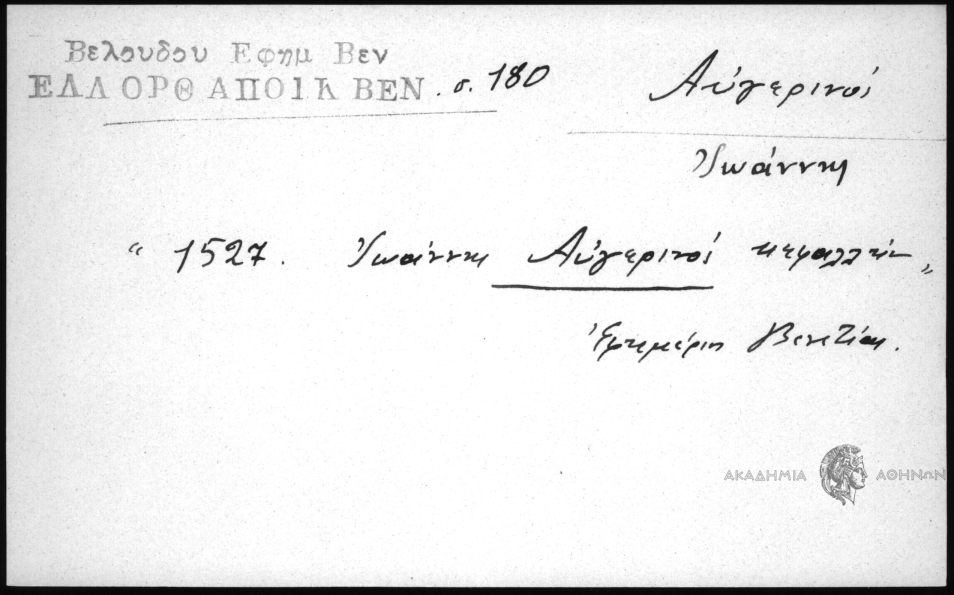 Βελουδου Εφημ Βεν
ΕΛΛ ΟΡΘ ΑΠΟΙΚ ΒΕΝ . σ. 180
Αὐγερινοί
Ἰωάννης
“ 1527. Ἰωάννης Αὐγερινοί κεφαλλήν „
Ἐφημέρις Βενετίας.
ΑΚΑΔΗΜΙΑ ΑΘΗΝΩΝ